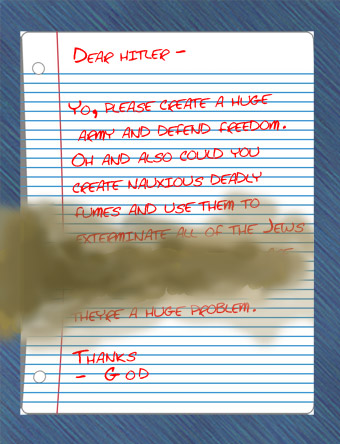 DEAR HITLER -
YO, PLEASE CREATE A HUGE
ARMY AND DEFEND FREEDOM.
OH AND ALSO COULD YOU
CREATE NAUXIOUS DEADLY
FUMES AND USE THEM TO
EXTERMINATE ALL OF THE JEWS
THEY'RE A HUGE PROBLEM.
THANKS
- GOD